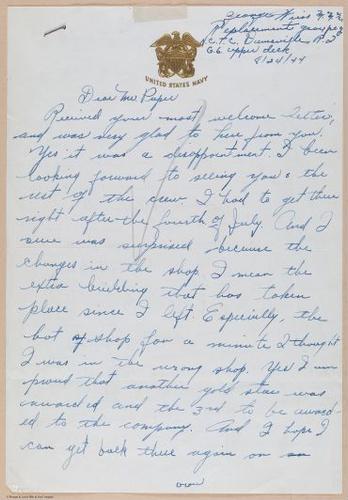 George Kiss F 2/c
Replacement group
N.C.T.C. Davisville R.I.
G.6 upper deck
8/24/44
UNITED STATES NAVY
Dear Mr Piper
Received your most welcome letter,
and was very glad to here from you.
Yes it was a disappointment. I been
looking forward to seeing you & the
rest of the crew. I had to get there
right after the fourth of July. And I
sure was surprised because the
changes in the shop I mean the
extra building that has taken
place since I left. Especially, the
boat shop for a minute I thought
I was in the wrong shop. Yes I am
proud that another gold star was
awarded and the 3rd to be award-
ed to the company. And I hope I
can get back there again on an
over